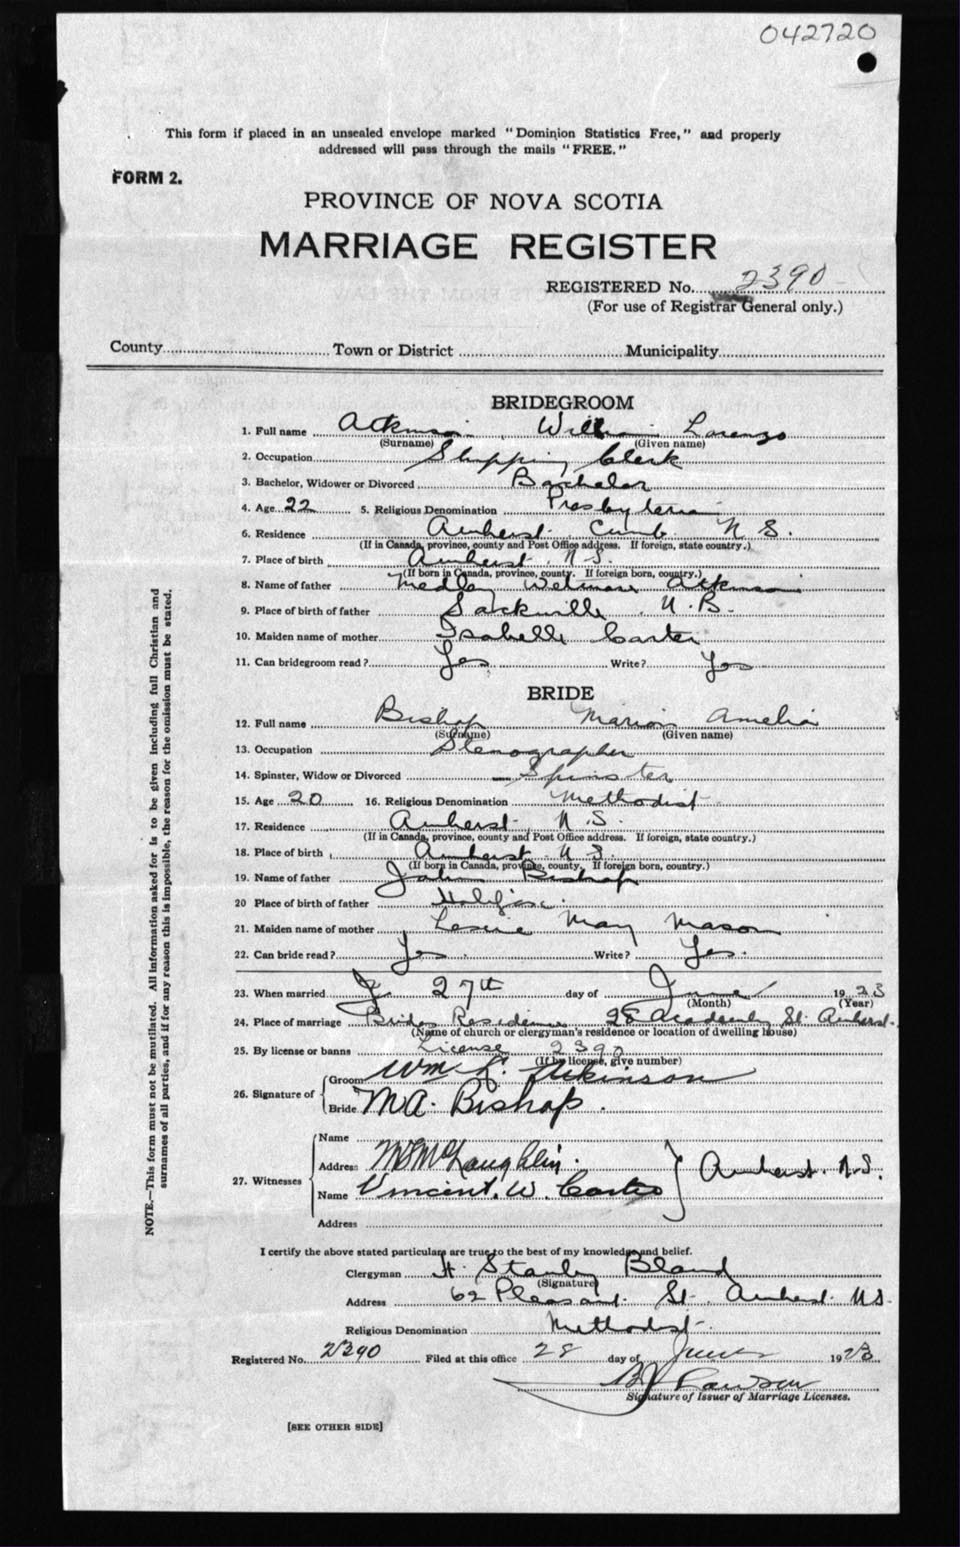 042720
This form if placed in an unsealed envelope marked "Dominion Statistics Free," and properly
addressed will pass through the mails "FREE."
FORM 2.
PROVINCE OF NOVA SCOTIA
MARRIAGE REGISTER
REGISTERED No. 2390
(For use of Registrar General only.)
County Town or District Municipality
BRIDEGROOM
1. Full name Atkinson William Lorenzo
(Surname) (Given name)
2. Occupation Shipping Clerk
3. Bachelor, Widower or Divorced Bachelor
4. Age 22 5. Religious Denomination Presbyterian
6. Residence Amherst Cumb. N. S.
(If in Canada, province, county and Post Office address. If foreign, state country.)
7. Place of birth Amherst N.S.
(If born in Canada, province, county. If foreign born, country.)
8. Name of father Medley Atkinson
9. Place of birth of father Sackville N.B.
10. Maiden name of mother Isabelle Carter
11. Can bridegroom read? Yes Write? Yes
BRIDE
12. Full name Bishop Marion Amelia
(Surname) (Given name)
13. Occupation Stenographer
14. Spinster, Widow or Divorced Spinster
15. Age 20 16. Religious Denomination Methodist
17. Residence Amherst N.S.
(If in Canada, province, county and Post Office address. If foreign, state country.)
18. Place of birth Amherst N.S.
(If born in Canada, province, county. If foreign born, country.)
19. Name of father John Bishop
20 Place of birth of father Halifax.
21. Maiden name of mother May Mason
22. Can bride read? Yes. Write? Yes.
23. When married 27th day of June 1923
(Month) (Year)
24. Place of marriage Brides Residence 28 Academy St. Amherst.
(Name of church or clergyman's residence or location of dwelling house)
25. By license or banns License 2390
(If by license, give number)
26. Signature of Groom Wm L. Atkinson
Bride M A. Bishop.
27. Witnesses
Name
Address McLaughlin. Amherst. N.S.
Name Vincent. W. Carter
Address
I certify the above stated particulars are true to the best of my knowledge and belief.
Clergyman H. Stanley Bland
(Signature)
Address 62 Pleasant St. Amherst. NS.
Religious Denomination Methodist.
Registered No. 2390 Filed at this office 28 day of June 1923
Rawson
Signature of Issuer of Marriage Licenses.
[SEE OTHER SIDE]
NOTE.—This form must not be mutilated. All information asked for is to be given including full Christian and
surnames of all parties, and if for any reason this is impossible, the reason for the omission must be stated.